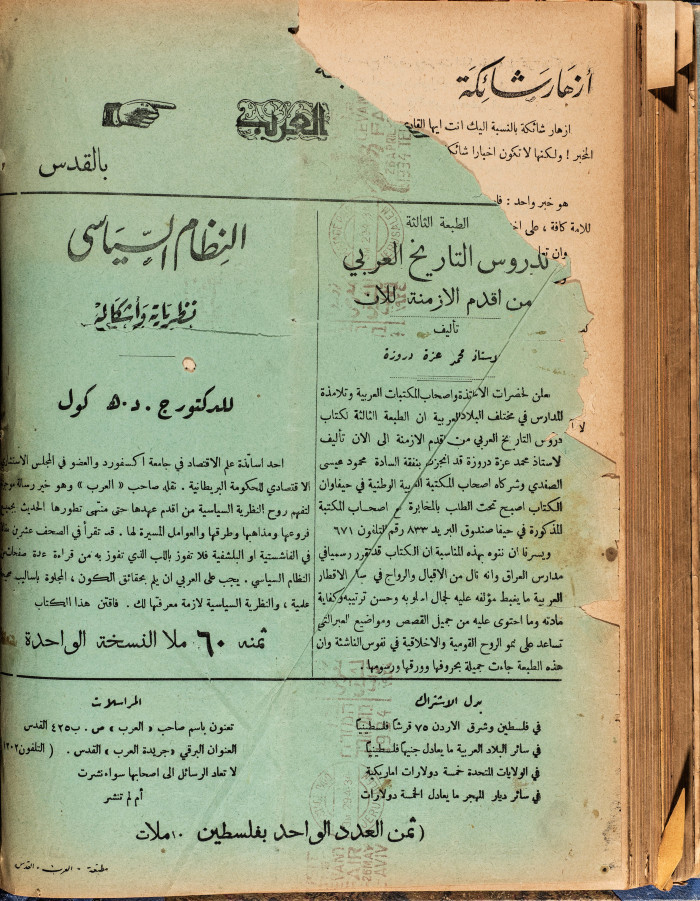 أزهار شائكة
ازهار شائكة بالنسبة اليك انت ايها القارئ
المخبر ! ولكنها لا تكون اخبارا شائكة
هو خبر واحد :
للامة كافة ، على
وان
العرب
بالقدس
الطبعة الثالثة
لدروس التاريخ العربي
من اقدم الازمنة للان
تأليف
لاستاذ محمد عزة دروزة
يعلن لحضرات الاساتذة واصحاب المكتبات العربية وتلامذة
المدارس في مختلف البلاد العربية ان الطبعة الثالثة لكتاب
دروس التاريخ العربي من اقدم الازمنة الى الان تأليف
لاستاذ محمد عزة دروزة قد انجزت بنفقة السادة محمود عيسى
الصفدي وشركاه اصحاب المكتبة العربية الوطنية في حيفا وان
الكتاب اصبح تحت الطلب بالمخابرة مع اصحاب المكتبة
المذكورة في حيفا صندوق البريد ٨٣٣ رقم التلفون ٦٧١
ويسرنا ان ننوه بهذه المناسبة ان الكتاب قد تقرر رسميا في
مدارس العراق وانه نال من الاقبال والرواج في سائر الاقطار
العربية ما يغبط مؤلفه عليه لجمال اسلوبه وحسن ترتيبه وكفاية
مادته وما احتوى عليه من جميل القصص ومواضيع العبر التي
تساعد على نمو الروح القومية والاخلاقية في نفوس الناشئة وان
هذه الطبعة جاءت جميلة بحروفها وورقها ورسومها
النظام السياسي
نظرياته وأشكاله
للدكتور ج . د . ه كول
احد اساتذة علم الاقتصاد في جامعة أكسفورد والعضو في المجلس الاستشاري
الاقتصادي للحكومة البريطانية . نقله صاحب «العرب» وهو خير رسالة موجزة
لتفهم روح النظرية السياسية من اقدم عهدها حتى منتهى تطورها الحديث بجميع
فروعها ومذاهبها وطرقها والعوامل المسيرة لها . قد تقرأ في الصحف عشرين مقالا
في الفاشستية او البلشفية فلا تفوز باللب الذي تفوز به من قراءة عدة صفحات من
النظام السياسي . يجب على العربي ان يلم بحقائق الكون ، المجلوة باساليب صحيحة
علمية ، والنظرية السياسية لازمة معرفتها لك . فاقتن هذا الكتاب
ثمنه ٦٠ ملا النسخة الواحدة
بدل الاشتراك
في فلسطين وشرق الاردن ٧٥ قرشا فلسطينيا
في سائر البلاد العربية ما يعادل جنيها فلسطينيا
في الولايات المتحدة خمسة دولارات اماريكية
في سائر ديار المهجر ما يعادل الخمسة دولارات
المراسلات
تعنون باسم صاحب «العرب» ص . ب ٤٢٥ القدس
العنوان البرقي «جريدة العرب» القدس . ( التلفون ١٢٠٢
لا تعاد الرسائل الى اصحابها سواء نشرت
أم لم تنشر
( ثمن العدد الواحد بفلسطين ١٠ ملات
مطبعة - العرب - القدس